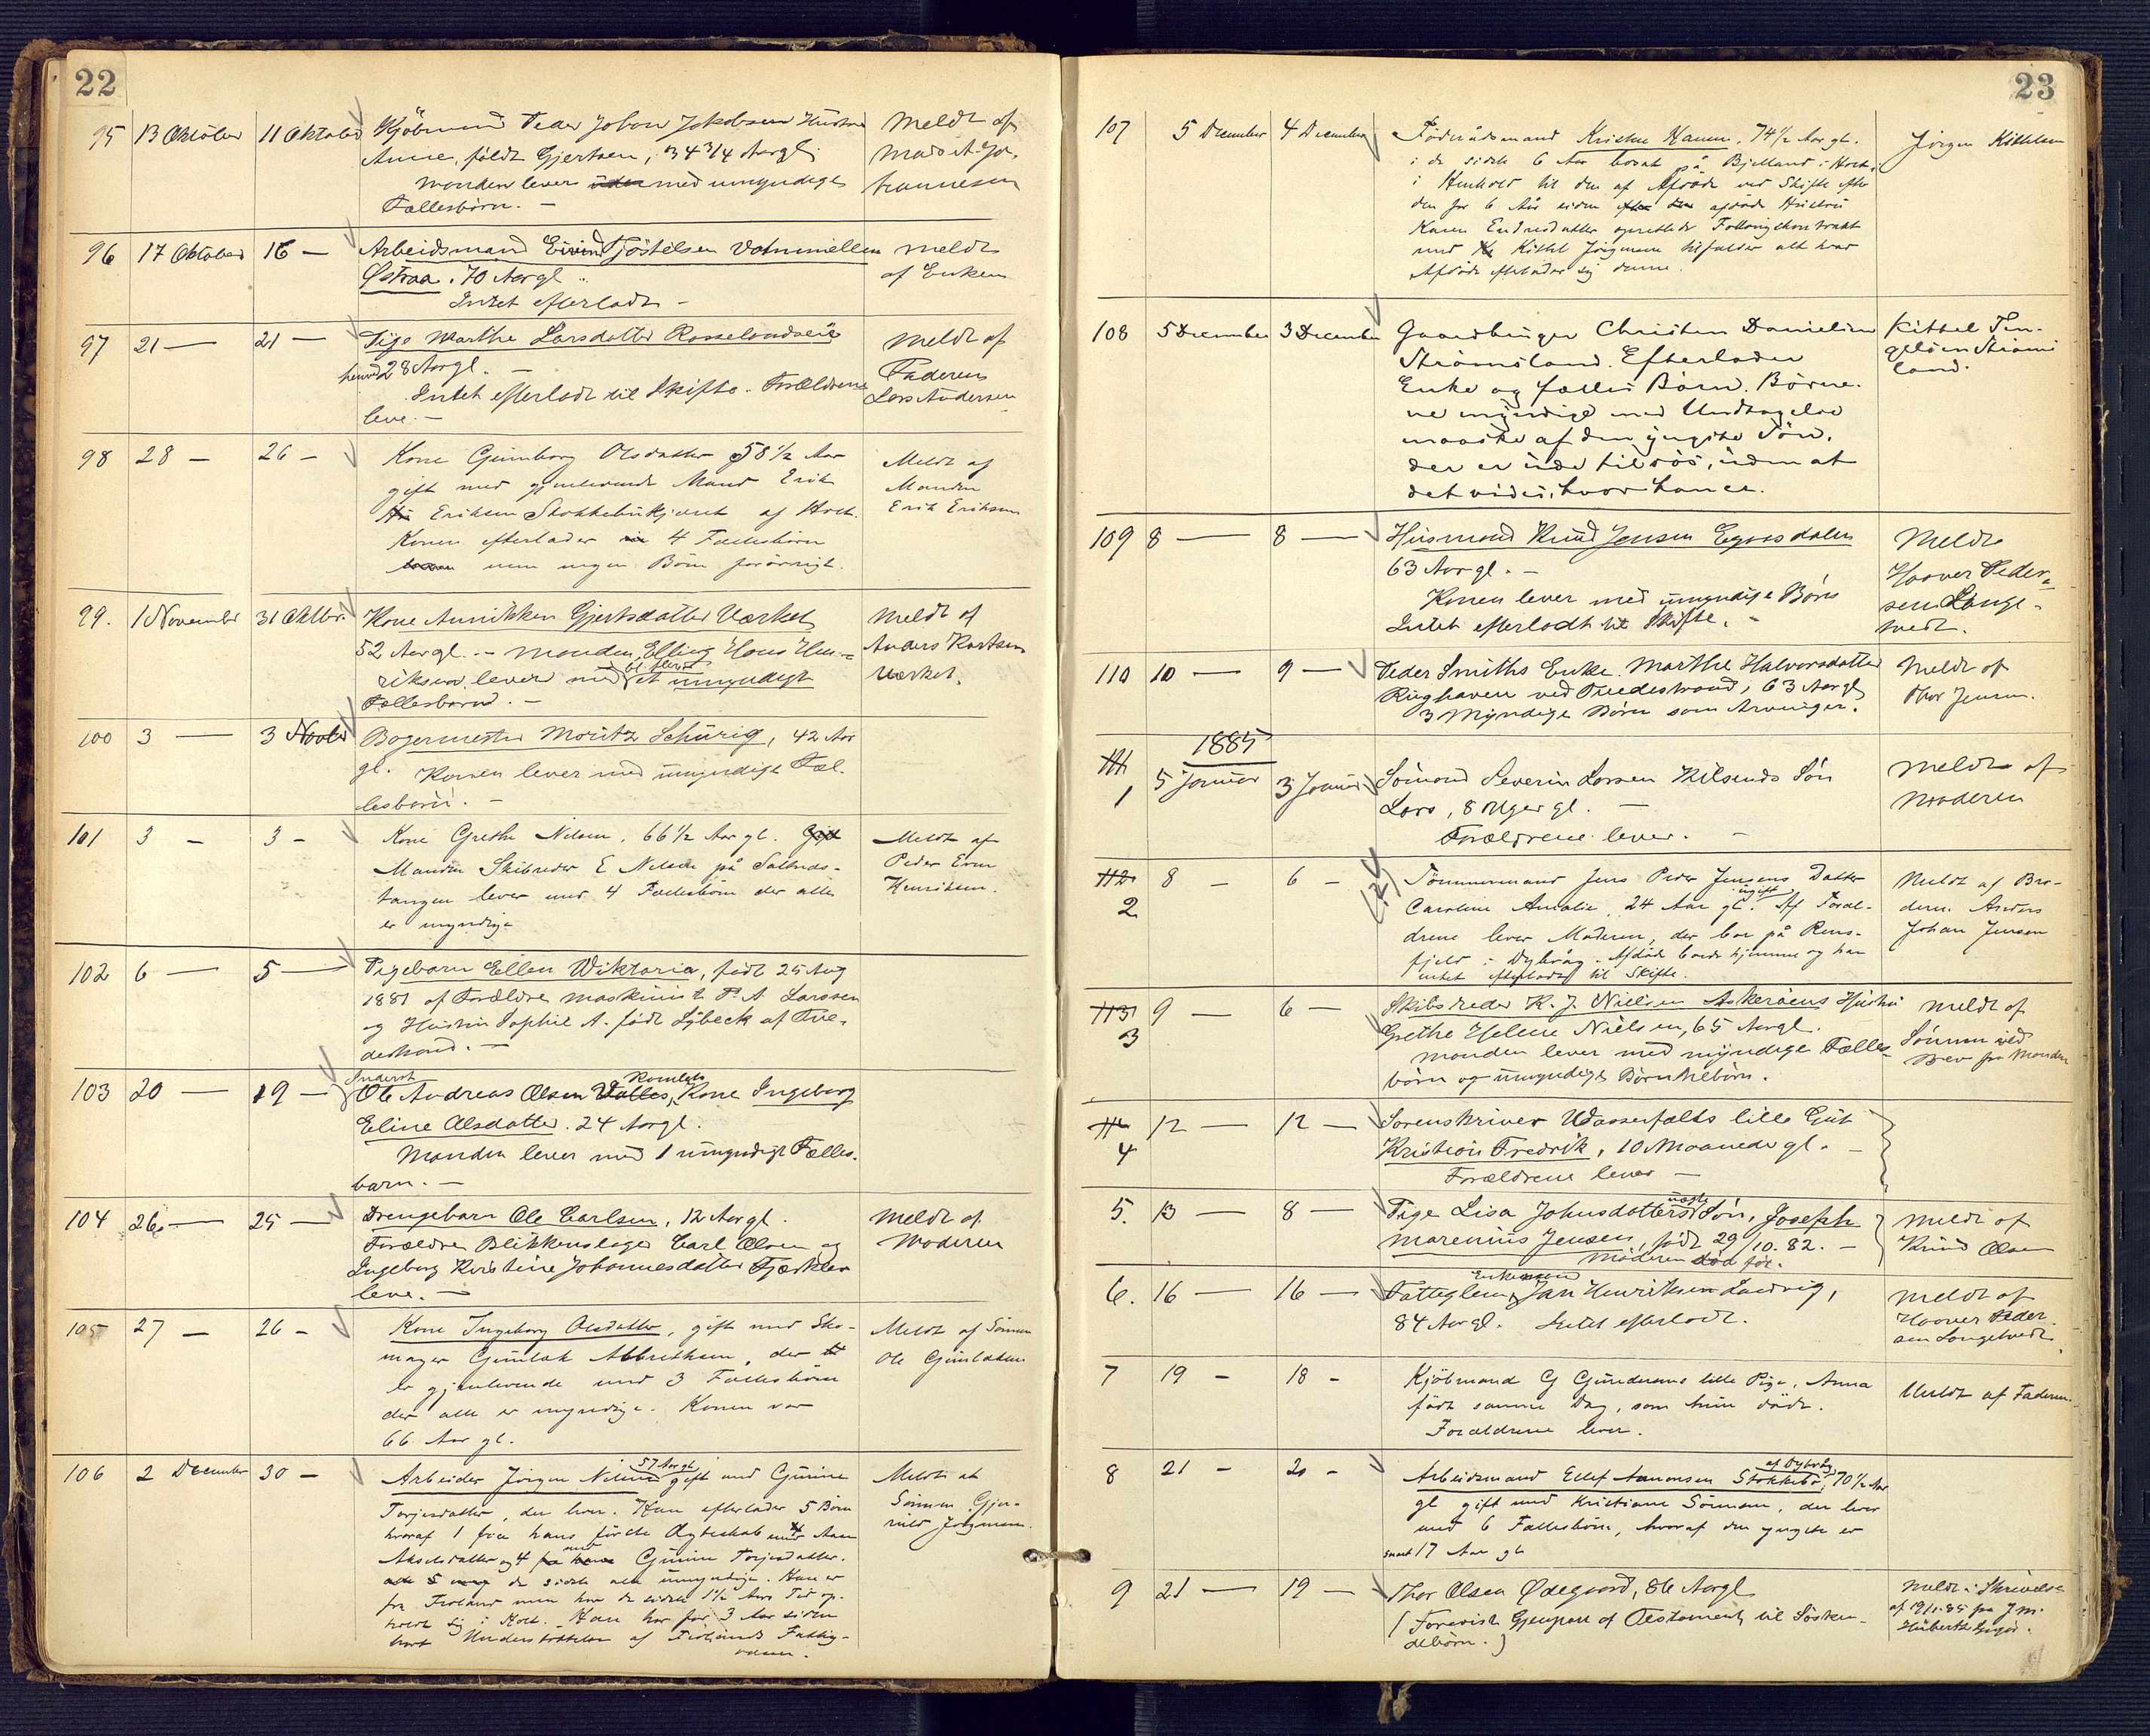 22
95 13 Oktober 11 Oktober Kjöbmand Peder Johan Jakobsen Hustru Meldt af
Anne, födt Gjertsen, 34 3/4 Aar gl. Mads A. Jo-
Manden lever med umyndige hannesen
Fællesbörn. —
96 17 Oktober 16 — Arbeidsmand Eivind Tjöstelsen Vommellen Meldt
Østraa. 70 Aar gl. af Enken
Intet efterladt —
97 21 — 21 — Pige Marthe Larsdatter Rosselandseie Meldt af
henved 28 Aar gl. — Faderen
Intet efterladt til Skifte. Forældrene Lars Andersen
leve. —
98 28 — 26 — Kone Gunborg Olsdatter 58 1/2 Aar Meldt af
gift med gjenlevende Mand Erik Manden
Eriksen Stokkebukjært af Holt. Erik Eriksen
Konen efterlader 4 Fællesbörn
men ingen Börn forövrigt.
99. 1 November 31 Oktbr. Kone Annikken Gjertsdatter Værket Meldt af
52 Aar gl. — Manden, Elling Hans Hen- Anders Knutsen
riksen lever med et umyndigt Værket.
Fællesbarn. —
100 3 — 3 Novbr Bogermester Moritz Schürig, 42 Aar
gl. Konen lever med umyndige Fæl-
lesbörn. —
101 3 — 3 — Kone Grethe Nilsen, 66 1/2 Aar gl. Gift Meldt af
Manden Skibsreder E Nilsen på Saltneds- Peder Even
tangen lever med 4 Fællesbörn der alle Henriksen.
er myndige
102 6 — 5 — Pigebarn Ellen Wiktoria, födt 25 Aug
1881 af Forældre Maskinist P. A. Larssen
og Hustru Sophie A. födt Lybeck af Tve-
destrand. —
103 20 — 19 — Inderst Romlets
Ole Andreas Olsen Valles, Kone Ingeborg
Eline Olsdatter. 24 Aar gl.
Manden lever med 1 umyndigt Fælles-
barn. —
104 26 — 25 — Drengebarn Ole Carlsen, 12 Aar gl. Meldt af
Forældre Blikkenslager Carl Olsen og Moderen
Ingeborg Kristine Johannesdatter Fjærkleiv
leve. —
105 27 — 26 — Kone Ingeborg Olsdatter, gift med Sko- Meldt af Sönnen
mager Gunlak Albrethsen, der Ole Gunlaksen
er gjenlevende med 3 Fællesbörn
der alle er myndige. Konen var
66 Aar gl.
106 2 December 30 — 57 Aar gl.
Arbeider Jörgen Nilsen gift med Gunine Meldt at
Torjesdatter, der lever. Han efterlader 5 Börn Sönnen Gjer-
hvoraf 1 fra hans förste Ægteskab med Aase mund Jörgensen.
Akselsdatter og 4 med Gunine Torjesdatter.
de sidste alle umyndige. Han er
fra Froland men har de sidste 1 1/2 Aars Tid op-
holdt sig i Holt. Han har for 3 Aar siden
havt Understöttelse af Frolands Fattig-
væsen.
23
107 5 December 4 December Föderådsmand Kristen Hansen, 74 1/2 Aar gl. Jörgen Kittelsen
i de sidste 6 Aar bosat på Bjelland i Holt,
i Henhold til den af Afdöde ved Skifte efter
den for 6 Aar siden afdöde Hustru
Karen Endresdatter oprettede Follougskontrakt
med Kittel Jörgensen tilfalder alt hvad
Afdöde efterlader sig denne.
108 5 December 3 December Gaardbruger Christen Danielsen Kittel Ten-
Strömsland. Efterlader gelsen Ströms
Enke og fælles Börn. Börne- land.
ne myndige med Undtagelse
maaske af den yngste Sön,
der er ude tilsös, uden at
det vides, hvor han er.
109 8 — 8 — Husmand Knud Jensen Egnesdalen Meldt
63 Aar gl. — Haaver Peder-
Konen lever med umyndige Börn sen Lange-
Intet efterladt til Skifte. — tvedt.
110 10 — 9 — Peder Smiths Enke Marthe Halvorsdatter Meldt af
Ringhaven ved Tvedestrand, 63 Aar gl. Thor Jensen.
3 Myndige Börn som Arvinger.
1885
111 1 5 Januar 3 Januar Sömand Severin Larsen Nilsunds Sön Meldt af
Lars, 8 Uger gl. — Moderen
Forældrene lever. —
112 2 8 — 6 — Tömmermand Jens Peder Jensens Datter Meldt af Bro-
Caroline Amalie, 24 Aar gl. ugift. Af Foræl- deren Anders
drene lever Moderen, der bor på Rens- Johan Jensen
fjeld i Dybvåg. Afdöde boede hjemme og har
intet efterladt til Skifte.
113 3 9 — 6 — Skibsreder K. J. Nielsen Askeröens Hustru Meldt af
Grethe Helene Nielsen, 65 Aar gl. Sönnen ved
Manden lever med myndige Fælles- Brev fra Manden
börn og umyndige Börnebörn.
114 4 12 — 12 — Sorenskriver Wasserfalls lille Gut
Kristian Fredrik, 10 Maaneder gl. —
Forældrene lever —
5. 13 — 8 — Pige Lisa Johnsdatters uægte Sön, Joseph Meldt af
Marenius Jensen, födt 29/10. 82. — Knud Olsen
Moderen död för.
6. 16 — 16 — Enkemand
Fattiglem, Jan Henriksen Landvig, Meldt af
84 Aar gl. Intet efterladt. Haaver Peder-
sen Langetvedt.
7 19 — 18 — Kjöbmand G Gundersens lille Pige, Anna Meldt af Faderen.
födt samme Dag, som hun döde.
Forældrene lever.
8 21 — 20 — af Dybvåg
Arbeidsmand Ellef Aanonsen Stokkebö, 70 1/2 Aar
gl gift med Kristiane Sörensen, der lever
med 6 Fællesbörn, hvoraf den yngste er
snart 17 Aar gl.
9 21 — 19 — Thor Olsen Ødegaard, 86 Aar gl. Meldt i Skrivelse
( Forevist Gjenpart af Testament til Sösken- af 19/1.85 fra J M.
debörn. ) Huberth